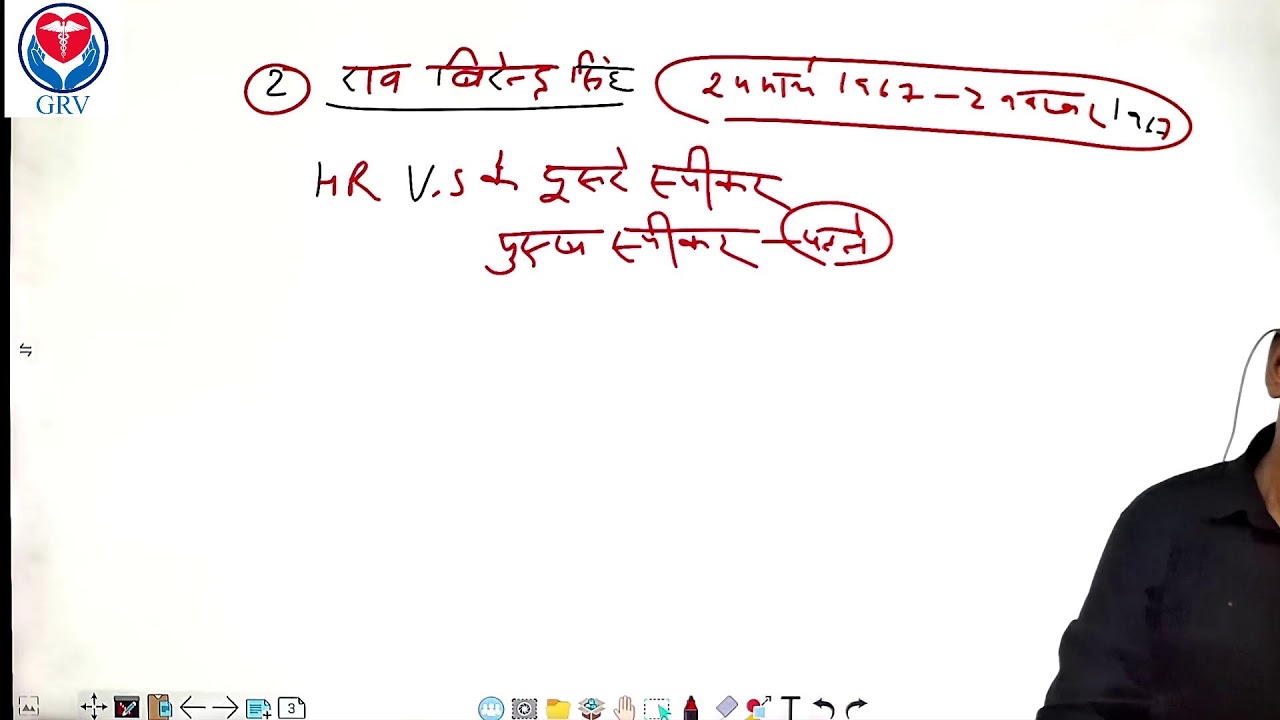 GRV
2 राव बिरेन्द्र सिंह 24 मार्च 1967 - 2 नवम्बर 1967
HR V.S के दूसरे स्पीकर
पुरुष स्पीकर - पहले
3
T